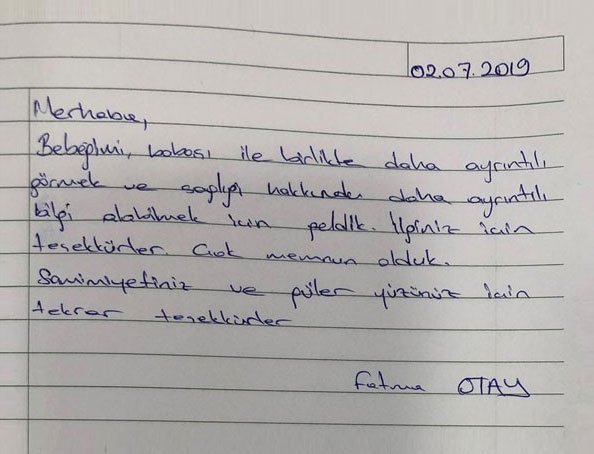 02.07.2019
Merhaba,
Bebeğimi, babası ile birlikte daha ayrıntılı
görmek ve sağlığı hakkında daha ayrıntılı
bilgi alabilmek için geldik. İlginiz için
teşekkürler. Çok memnun olduk.
Samimiyetiniz ve güler yüzünüz için
tekrar teşekkürler
Fatma OTAY